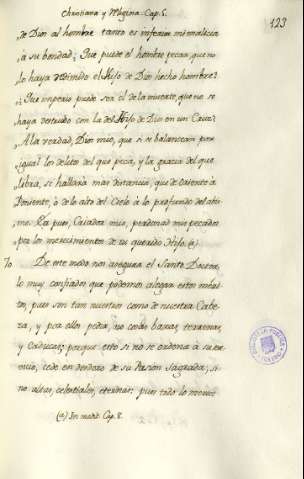 Christiana y Magina. Cap. 5.
123
„de Dios al hombre tanto es inferior mi malicia
„à su bondad; Que puede el hombre pecar, que no
„lo haya redimido el Hijo de Dios hecho hombre?
„Que imperio puede ser el de la muerte, que no se
„haya destruido con la del Hijo de Dios en un Cruz?
„A la verdad, Dios mio, que si se balancean por
„igual los delitos del que peca, y la gracia del que
„libra, se hallara mas distancia, que de oriente à
„Poniente, ò de lo alto del Cielo à lo profundo del abis-
„mo. Ea pues, Criador mio, perdonad mis pecados
„por los merecimientos de su querido Hijo. (a)
70 De este modo nos asegura el Santo Doctor,
lo muy confiados que podemos alegar estos meritos,
pues son tan nuestros como de nuestra Cabe-
za, y por ellos pedir, no cosas baxas, terrenas,
y caducas; porque esto si no se ordena à su
cede en desdoro de su Pasion Sagrada; si-
no altas, celestiales, eternas: pues todo lo
(a) In medit. Cap. 8.